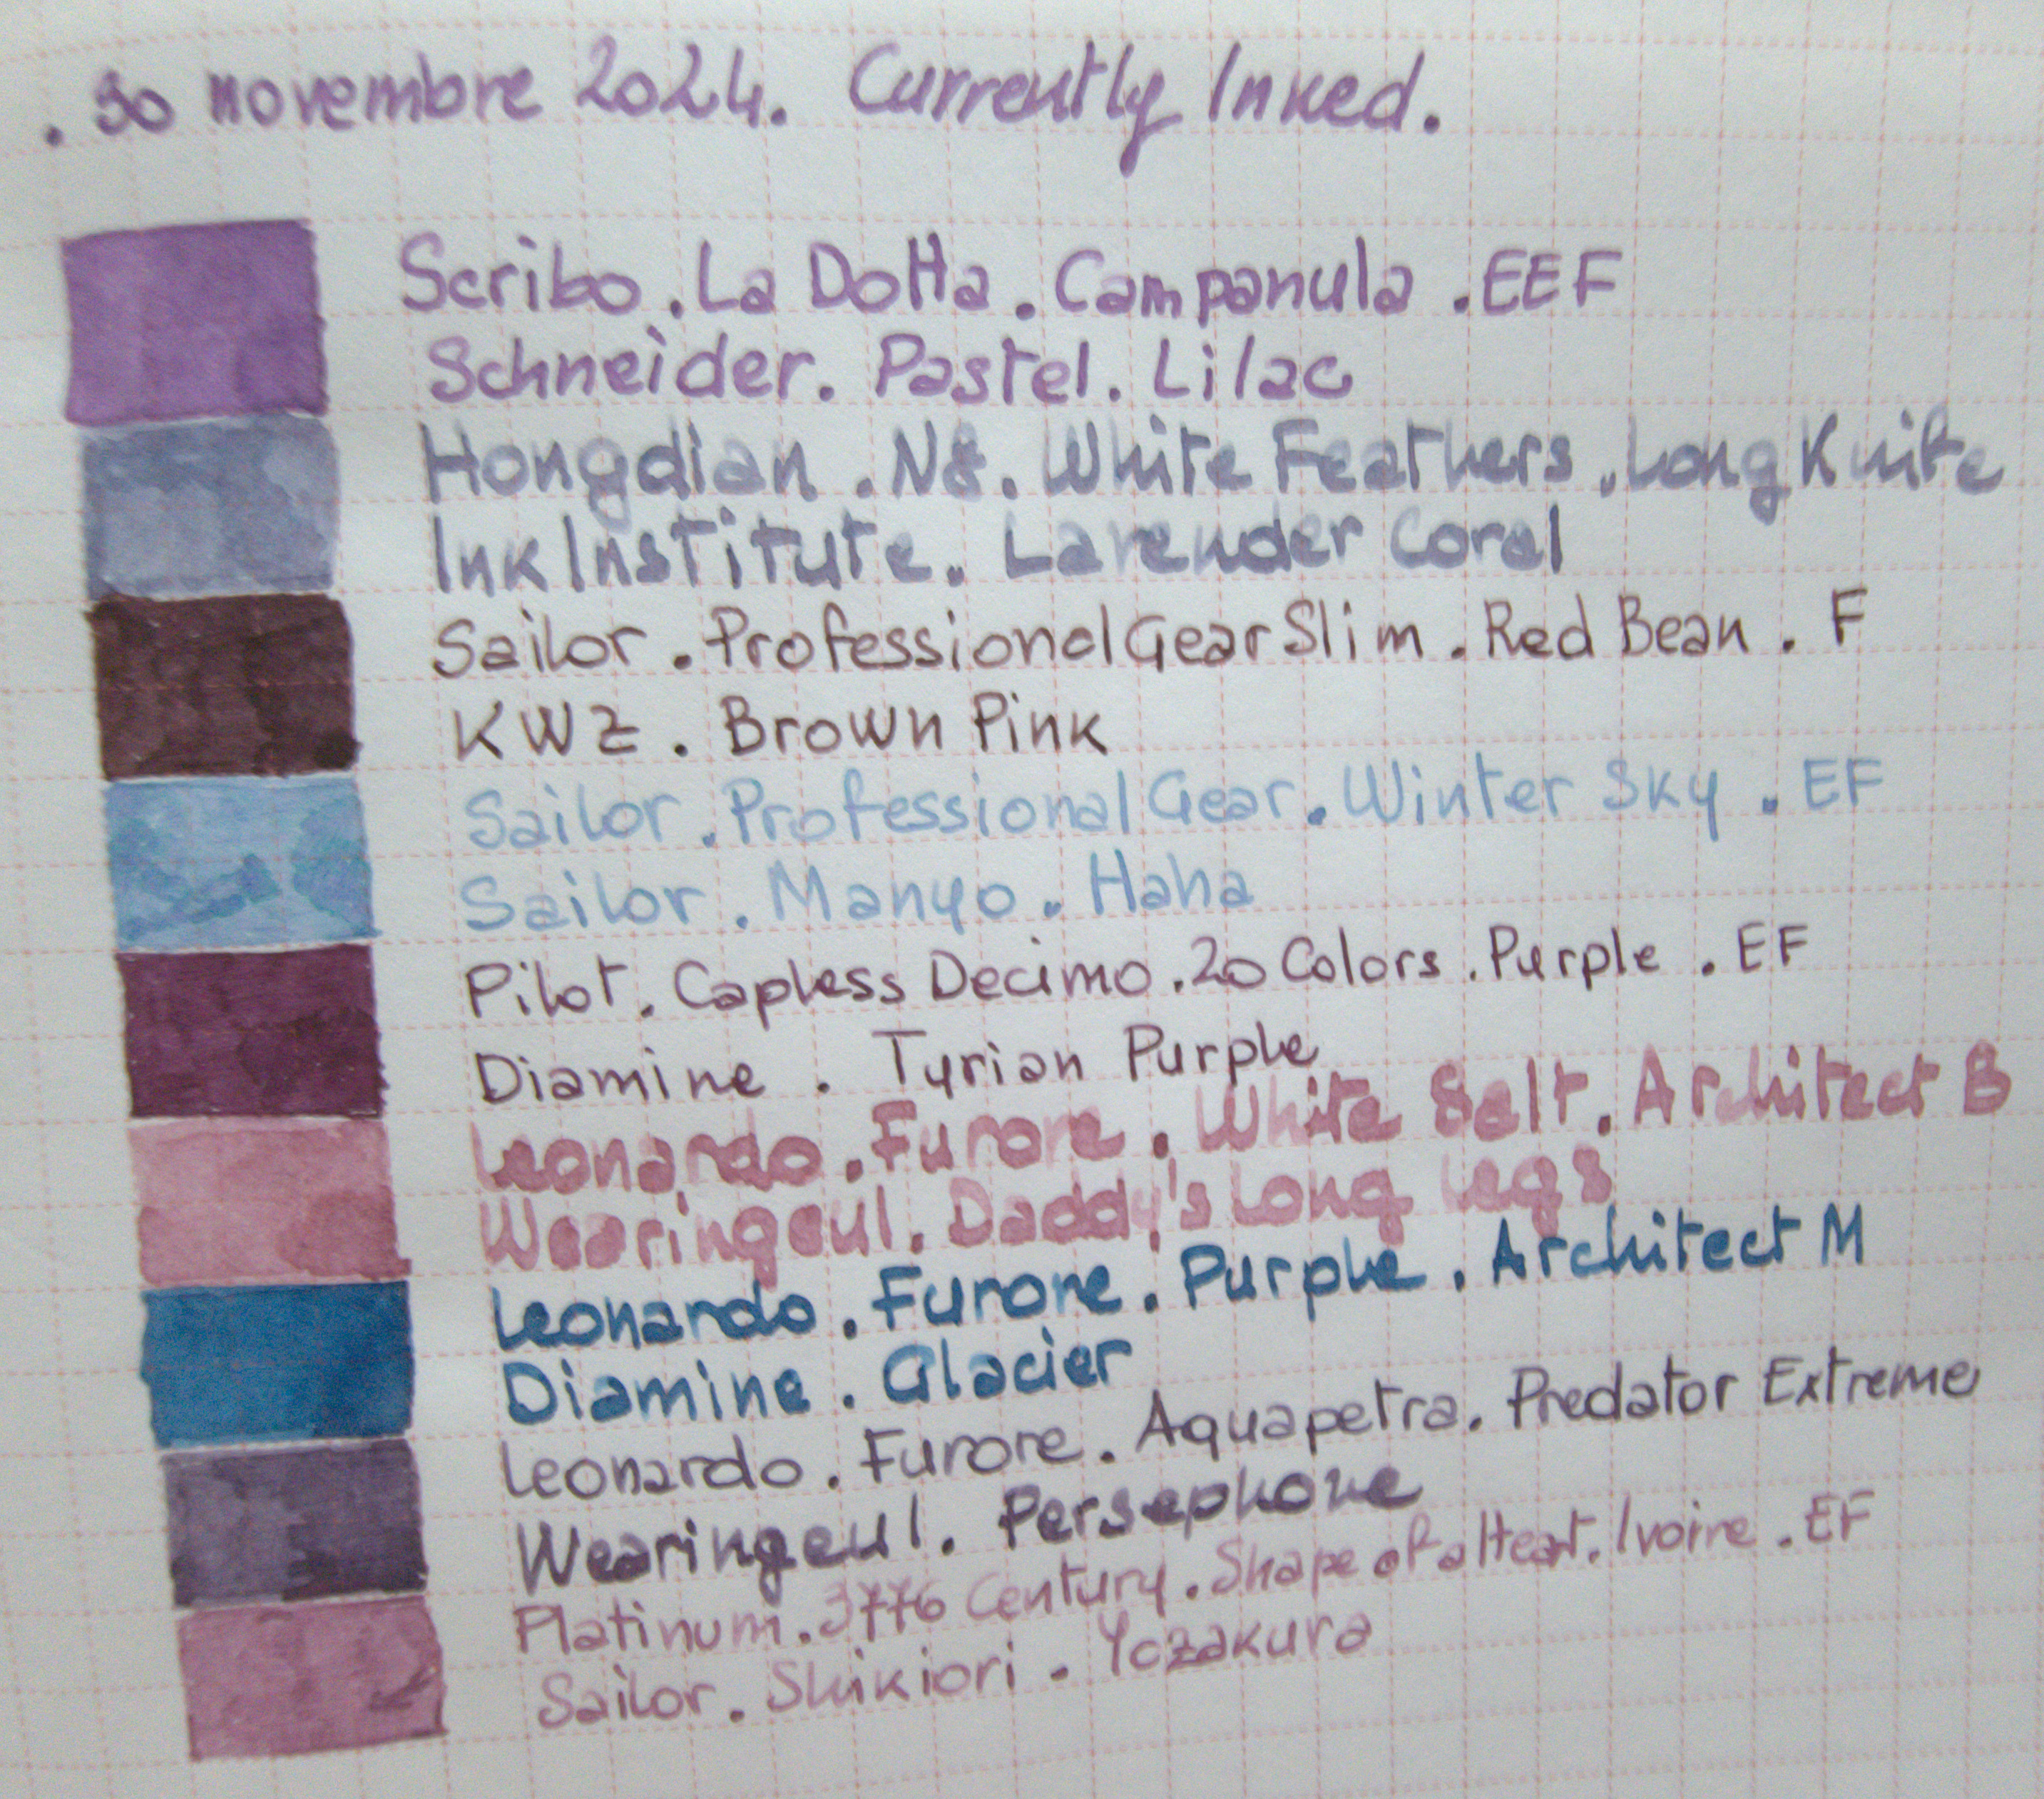 . 30 novembre 2024. Currently Inked.
Scribo . La Dotta . Campanula . EEF
Schneider . Pastel . Lilac
Hongdian . N8 . White Feathers . Long Knife
Ink Institute . Lavender Coral
Sailor . Professional Gear Slim . Red Bean . F
KWZ . Brown Pink
Sailor . Professional Gear . Winter Sky . EF
Sailor . Manyo . Haha
Pilot . Capless Decimo . 20 Colors . Purple . EF
Diamine . Tyrian Purple
Leonardo . Furore . White Salt . Architect B
Wearingeul . Daddy's Long Legs
Leonardo . Furore . Purple . Architect M
Diamine . Glacier
Leonardo . Furore . Aquapetra . Predator Extreme
Wearingeul . Persephone
Platinum . 3776 Century . Shape of a Heart . Ivoire . EF
Sailor . Shikiori . Yozakura